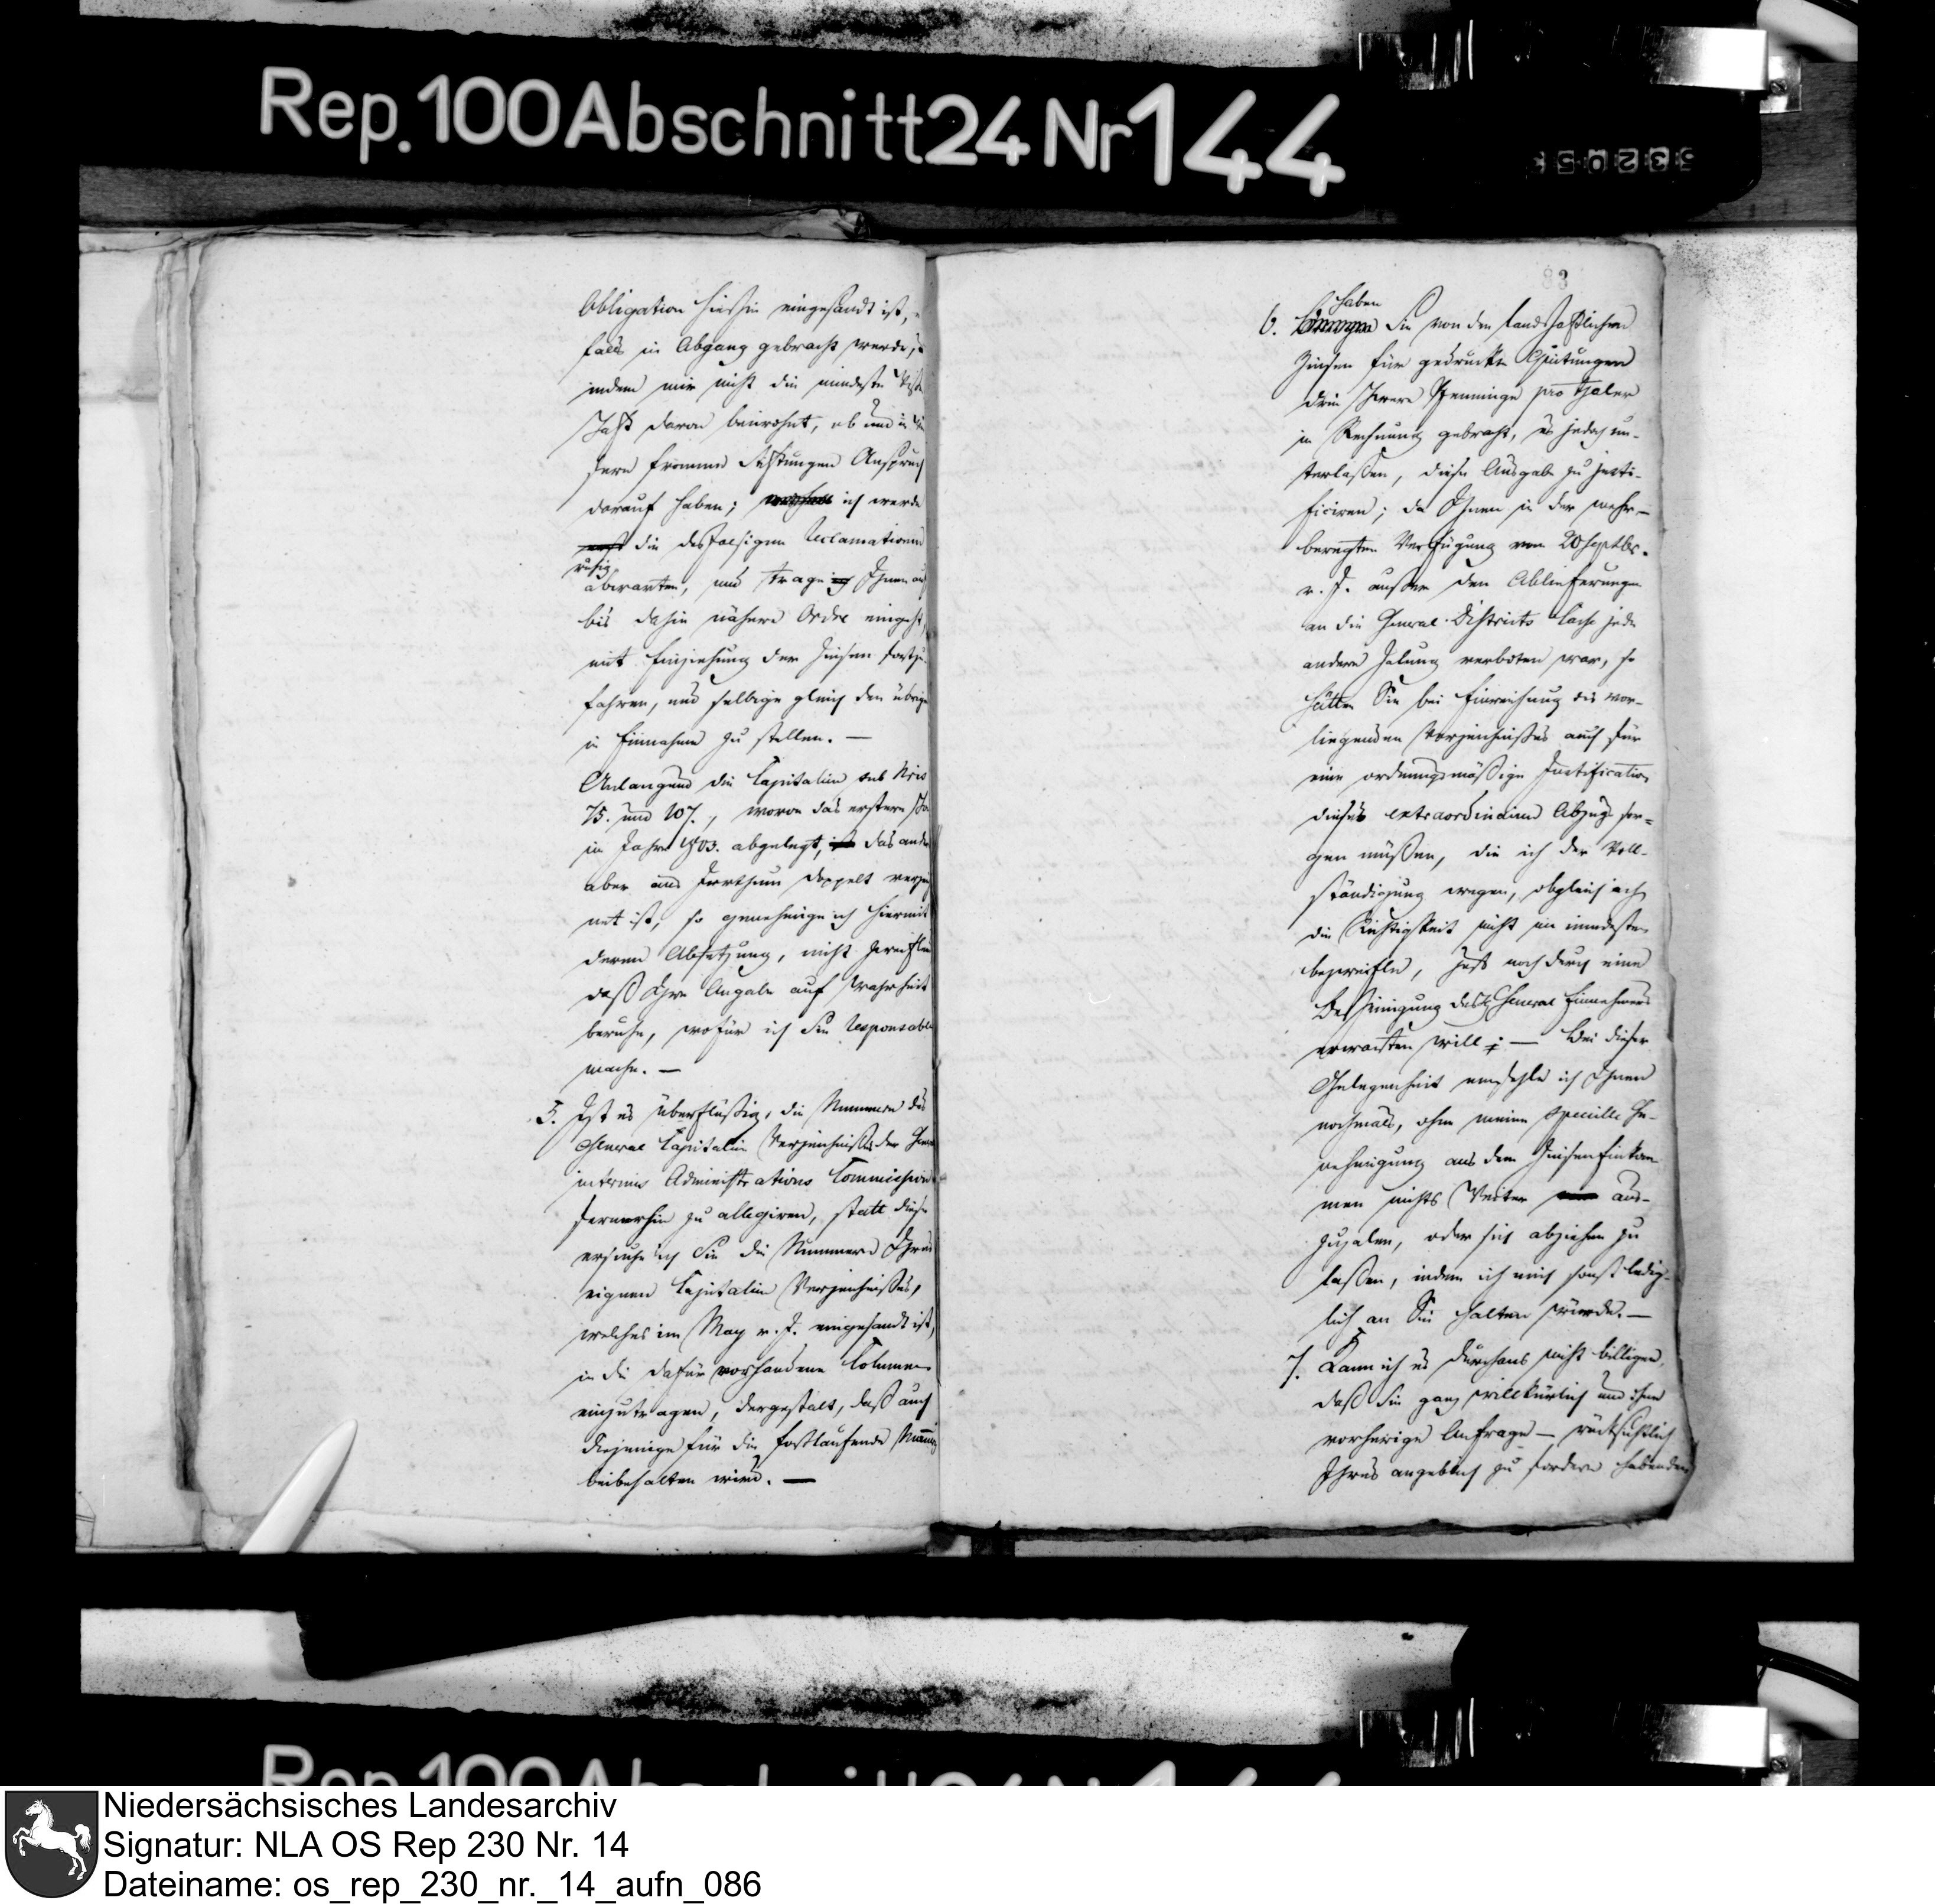 Rep. 100 Abschnitt 24 Nr 144
Obligation hiehin eingesandt ist,
falls in Abgang gebracht werde,
indem mir nicht die mindeste
schaft davon beiwohnt, ob und in
fern fromme Stiftungen Anspruch
darauf haben; ich werde
die desfalsigen Reclamationen
ruhig
abwarten, und trage Ihnen auf
bis dahin nähere Ordre eingeht,
mit Einziehung der Zinsen fortzu-
fahren, und selbige gleich den übrigen
in Einnahme zu stellen. —
Anlangend die Capitalien sub Nris
75. und 107., wovon das erstere schon
im Jahre 1803. abgelegt, das andere
aber aus Irrthum doppelt verzeich
net ist, so genehmige ich hiermit
deren Absetzung, nicht zweiflend
daß Ihre Angabe auf Wahrheit
beruhe, wofür ich Sie responsable
mache. —
5. Ist es überflüßig, die Nummern des
General Capitalien Verzeichnißes der General
interims Administrations Commission
fernerhin zu allegiren, statt dieser
ersuche ich Sie die Nummern Ihres
eignen Capitalien Verzeichnißes,
welches im May v. J. eingesandt ist,
in die dafür vorhandene Columne
einzutragen, dergestalt, daß auch
diejenige für die fortlaufende Nummer
beibehalten wird. —
83
haben
6. Sie von den landschaftlichen
Zinsen für gedruckte Quitungen
drei schwere Pfenninge pro Thaler
in Rechnung gebracht, es jedoch un-
terlaßen, diese Ausgabe zu justi-
ficiren; da Ihnen in der mehr-
beregten Verfügung vom 20 Septbr.
v. J. außer den Ablieferungen
an die General-Districts Casse jede
andere Zalung verboten war, so
hätten Sie bei Einreichung des vor-
liegenden Verzeichnißes auch für
eine ordnungsmäßige Justification
dieses extraordinairen Abzugs sor-
gen müßen, die ich der Voll-
ständigung wegen, obgleich ich
die Richtigkeit nicht im mindesten
bezweifle, jetzt noch durch eine
Bescheinigung des General Einnehmers
erwarten will; — Bei dieser
Gelegenheit empfehle ich Ihnen
nochmals, ohne meine specielle Ge-
nehmigung aus dem Zinseneinkom-
men nichts Weiter aus-
zuzalen, oder sich abziehen zu
laßen, indem ich mich sonst ledig-
lich an Sie halten würde. —
7. Kann ich es durchaus nicht billigen,
daß Sie ganz willkürlich und ohne
vorherige Anfrage — rücksichtlich
Ihres angeblich zu fordern habenden
Niedersächsisches Landesarchiv
Signatur: NLA OS Rep 230 Nr. 14
Dateiname: os_rep_230_nr._14_aufn_086